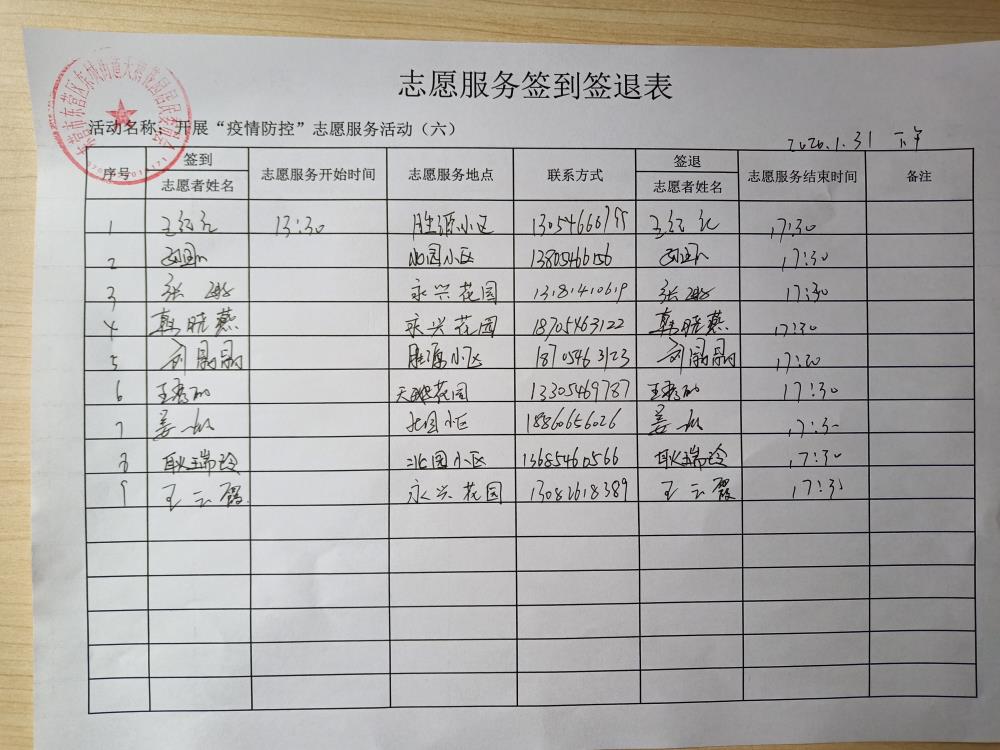 志愿服务签到签退表
活动名称：开展“疫情防控”志愿服务活动（六）
2020.1.31 下午
序号 签到 志愿者姓名 志愿服务开始时间 志愿服务地点 联系方式 签退 志愿者姓名 志愿服务结束时间 备注
1 13:30 胜源小区 17:30
2 北园小区 13805466156 17:30
3 张 永兴花园 13181410619 张 17:30
4 韩晓燕 永兴花园 18705463122 韩晓燕 17:30
5 刘 胜源小区 18705463123 刘 17:30
6 王秀 花园 13305469787 王秀 17:30
7 姜 北园小区 18860656026 姜 17:30
8 耿瑞玲 北园小区 13685460566 耿瑞玲 17:30
9 王云霞 永兴花园 13082618389 王云霞 17:30